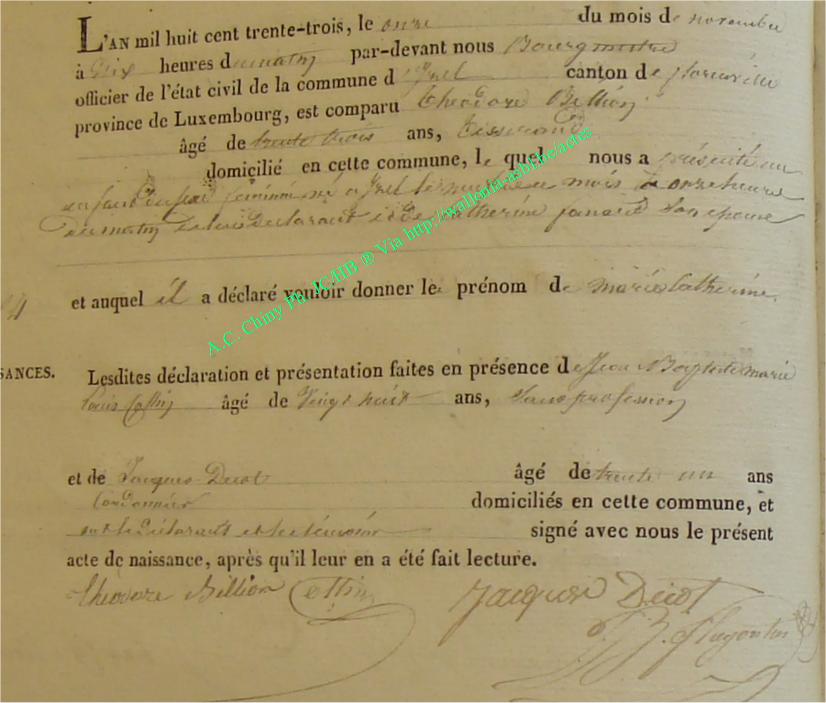 L'AN mil huit cent trente-trois, le onze du mois de novembre
à dix heures du matin par-devant nous Bourgmestre
officier de l'état civil de la commune d'Izel canton de florenville
province de Luxembourg, est comparu théodore Billion
âgé de trente trois ans, Tisserand
domicilié en cette commune, le quel nous a présenté un
enfant du sexe féminin né à Izel le mois à onze heures
du matin de lui déclarant et de Catherine fanard son épouse
et auquel il a déclaré vouloir donner le prénom de marie Catherine
SANCES. Lesdites déclaration et présentation faites en présence de Jean Baptiste marie
louis Collin âgé de vingt huit ans, sans profession
et de Jacques Decot âgé de trente un ans
Cordonnier domiciliés en cette commune, et
ont le déclarant et les témoins signé avec nous le présent
acte de naissance, après qu'il leur en a été fait lecture.
théodore Billion Collin Jacques Decot
A.C. Chiny Ph. JCHB ® Via http://wallonia-asbl.be/actes